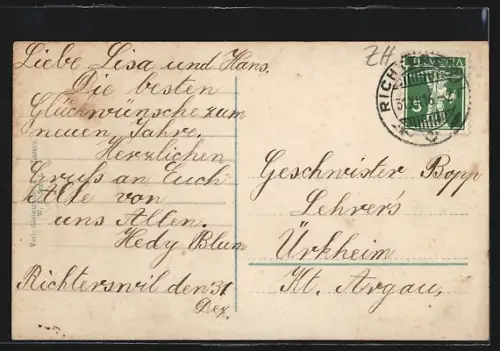 Liebe Lisa und Hans.
Die besten
Glückwünsche zum
neuen Jahre.
Herzlichen
Gruss an Euch
Alle von
uns Allen.
Hedy Blum
Richterswil den 31
Dez.
ZH
HELVETIA
5
RICH
Geschwister Bopp
Lehrer's
Ürkheim
Kt. Argau,